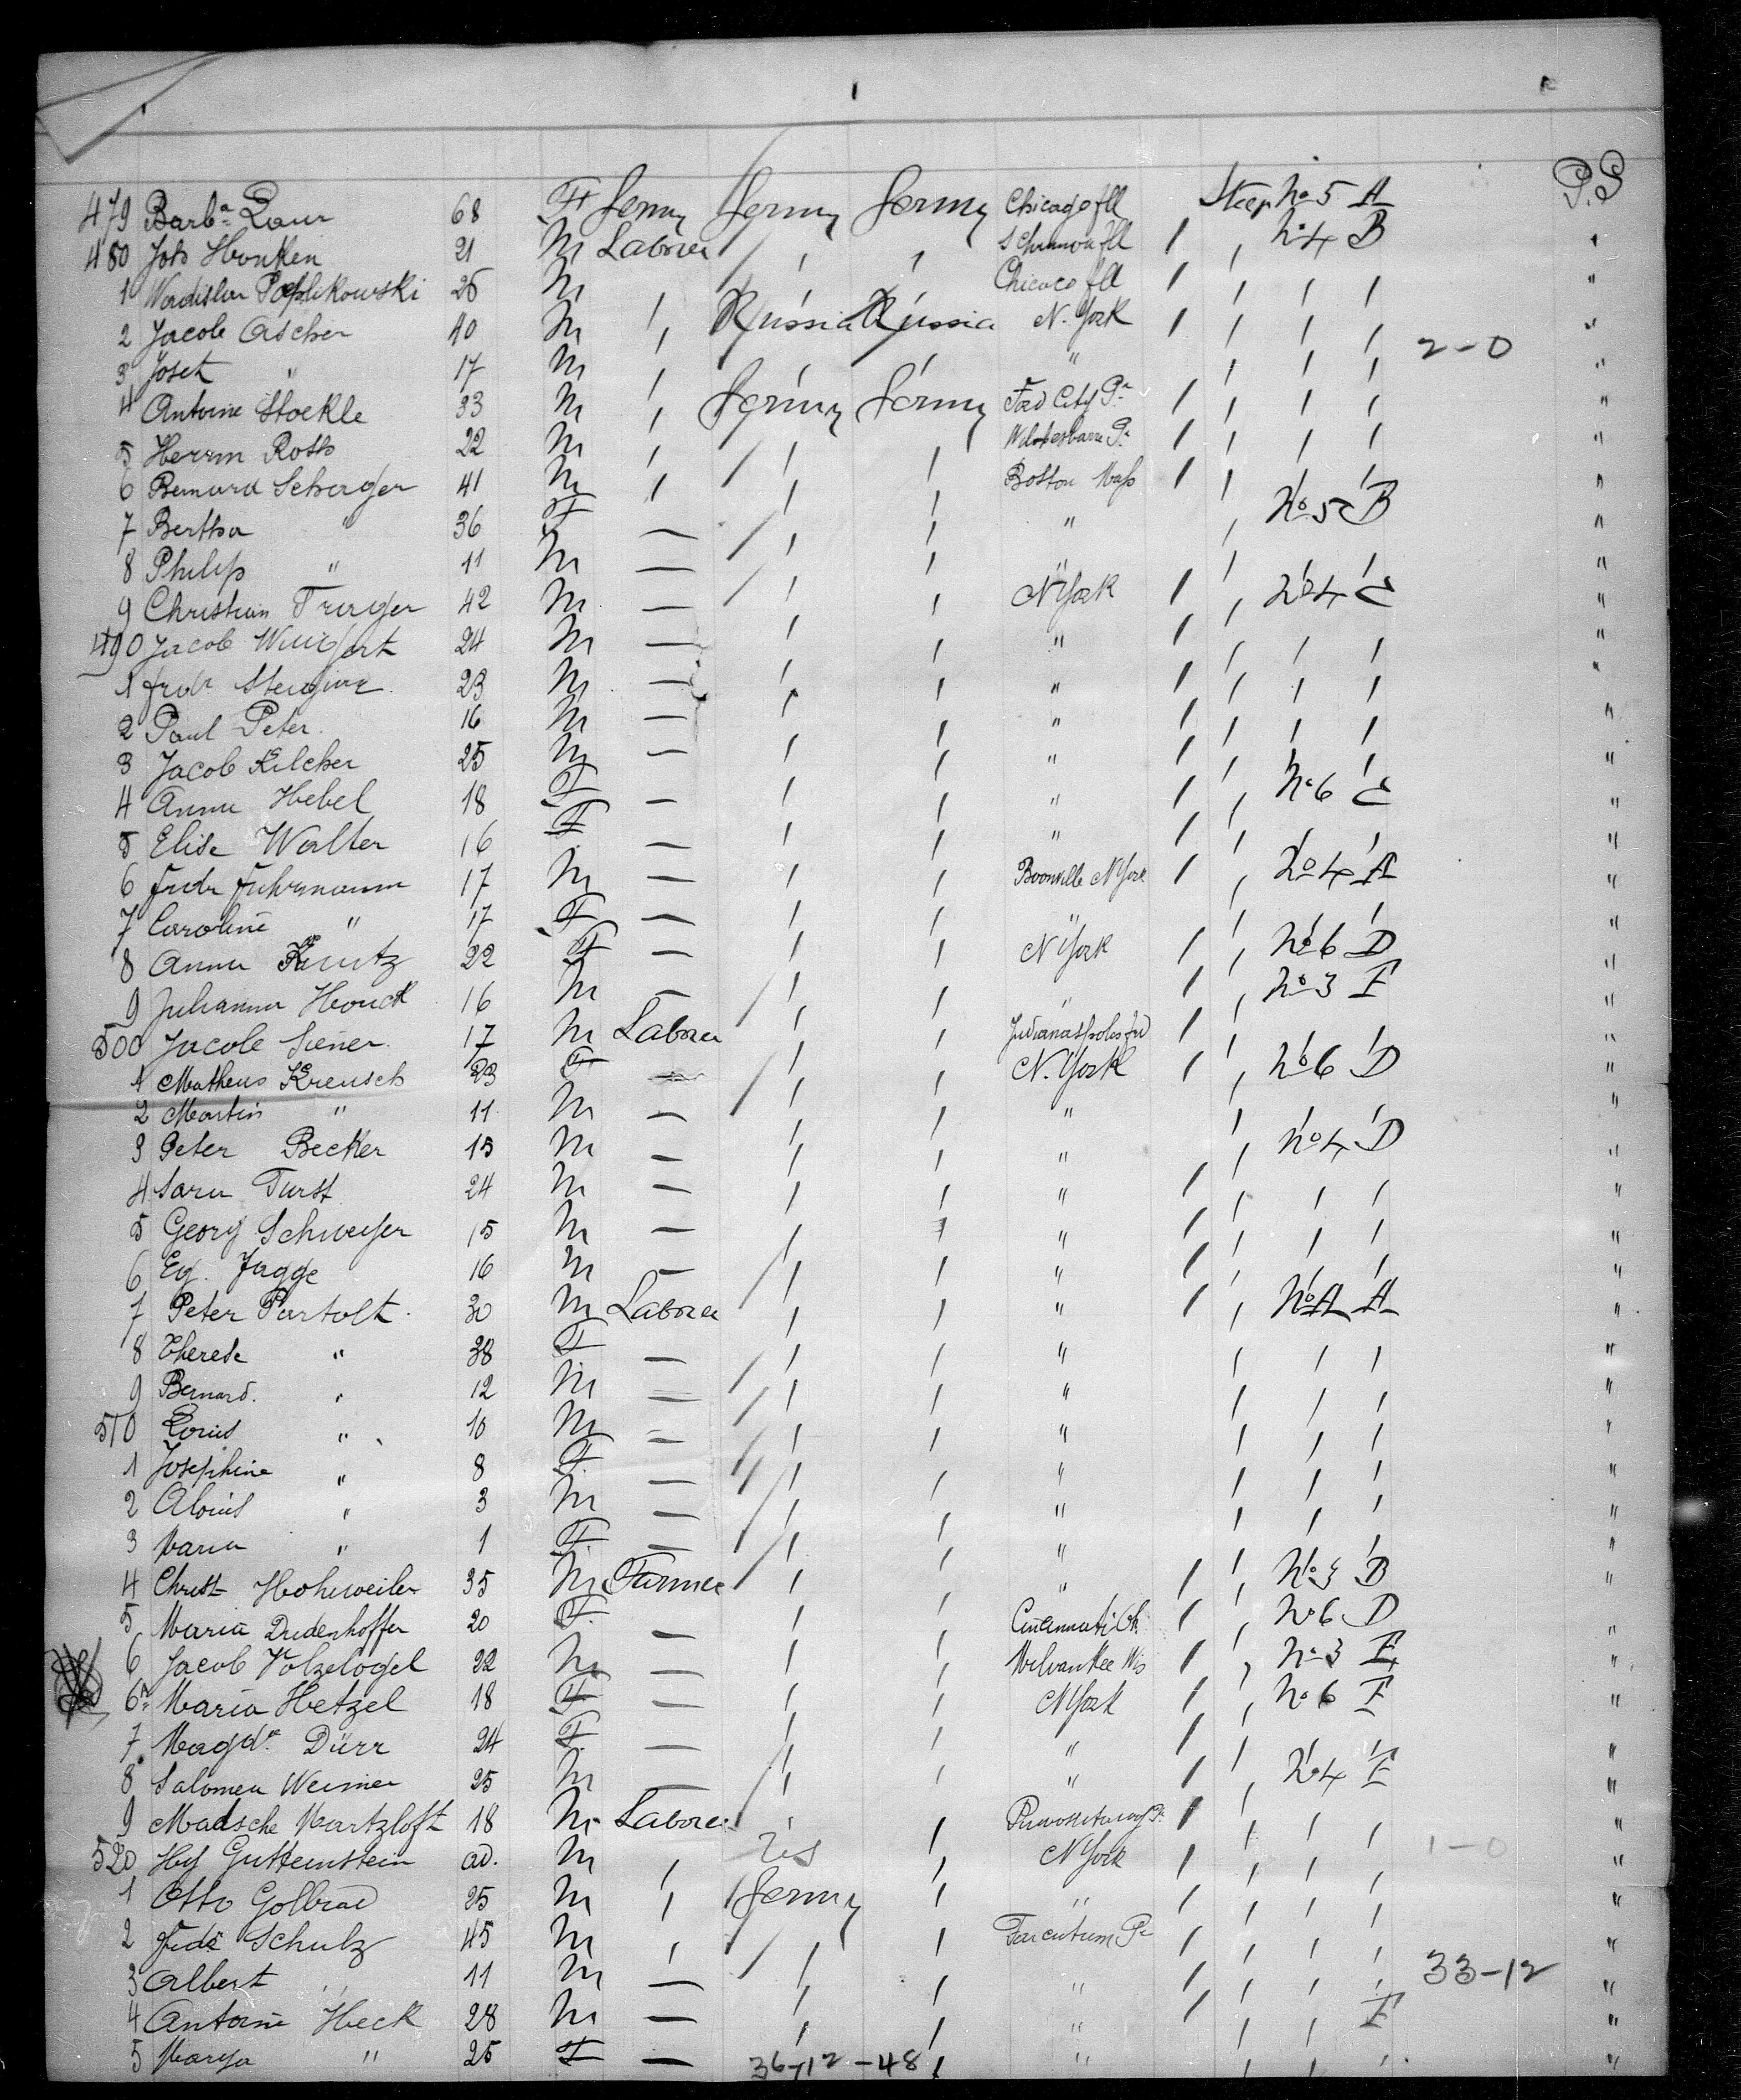 P.S
479 Barbª Laur 68 F Germy Germy Germy Chicago Ill Steer No 5 A
480 Joh Honken 21 M Laborer Ill No 4 B "
1 Wladislav Poplikowski 26 M Chicaco Ill "
2 Jacob Ascher 40 M Russia Russia N. York "
2-0
3 Josek " 17 M " "
4 Antoine Stoekle 33 M Germy Germy Ford City Pª "
5 Herrm Roth 22 M Wilkesbarre Pª "
6 Bernard Scherger 41 M Boston Mass "
7 Bertha " 36 F — " No 5 B "
8 Philip " 11 M — " "
9 Christian Truger 42 M — N York No 4 C "
490 Jacob Wingert 24 M — " "
1 Fredr 23 M — " "
2 Paul Peter 16 M — " "
3 Jacob Kilcher 25 M — " "
4 Anna Hebel 18 F — " No 6 C "
5 Elise Walter 16 F — " "
6 Fredr Fuhrmann 17 M — Boonville N York No 4 A "
7 Caroline " 17 F — " "
8 Anna Kuntz 22 F — N York No 6 D "
9 Johanna Houck 16 M — " No 3 F "
500 Jacob Siener 17 M Laborer Indianapolis Ind "
1 Matheus Kreusch 23 F — N. York No 6 D "
2 Martin " 11 M — " "
3 Peter Becker 15 M — " No 4 D "
4 Sara Furst 24 M — " "
5 Georg Schweyer 15 M — " "
6 Eg. Jagge 16 M — " "
7 Peter Partolt 30 M Laborer " No 4 A "
8 Therese " 38 F — " "
9 Bernard " 12 M — " "
510 Louis " 10 M — " "
1 Josephine " 8 F — " "
2 Alouis " 3 M — " "
3 Maria " 1 F — " "
4 Christ Hohweiler 35 M Farmer " No 3 B "
5 Maria Dudenhoffer 20 F — Cincinnati Oh. No 6 D "
6 Jacob Volzelogel 22 M — Milvankee Wis No 3 F "
6ª Maria Hetzel 18 F — N York No 6 F "
7 Magdª Dürr 24 F — " "
8 Salomea Weimer 25 M — " No 4 F "
9 Madsche Martzloft 18 M Laborer "
520 Hy Guttenstein ad. M US N York 1-0 "
1 Otto Golbrad 25 M Germy " "
2 Fredk Schulz 45 M Tarentum Pª "
3 Albert " 11 M — " 33-12 "
4 Antoine Heck 28 M — " F "
5 Marya " 25 F — 36-12-48 " "